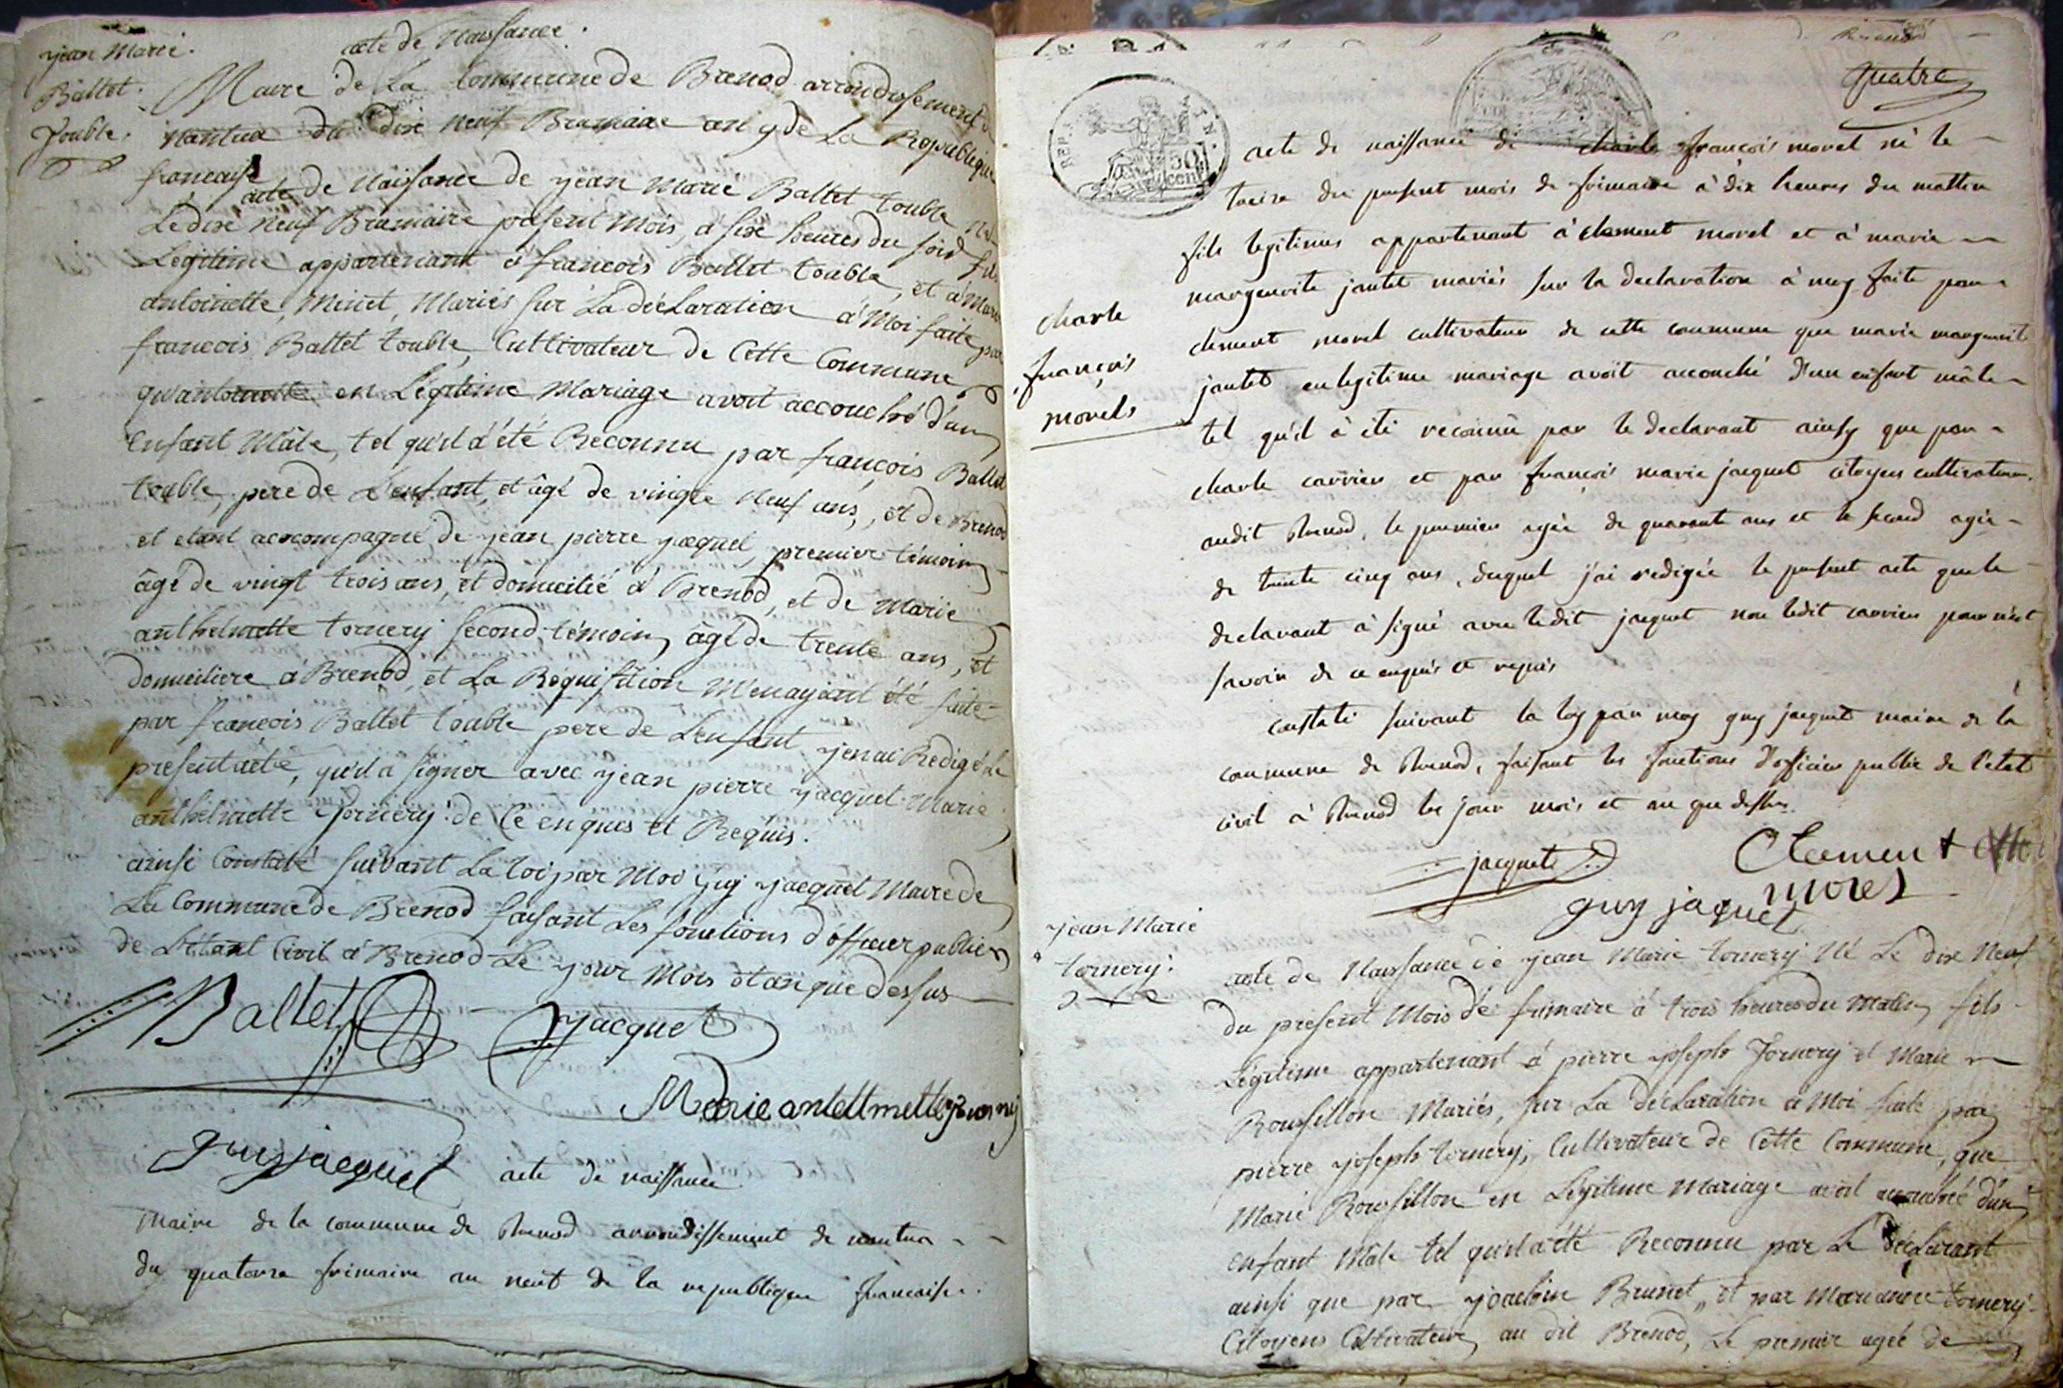 jean Marie
Ballet
Touble
acte de Naissance
Maire de La Commune de Brenod arrondissement
Nantua du dixe neuf Brumaire an 9 de La Republique
francaise
acte de Naissance de jean Marie Ballet touble Né
Le dixe neuf Brumaire present Mois, à sixe heures du soir fils
Legitime appartenant à francois Ballet touble, et à Marie
antoinette, Minet, Mariés sur La déclaration à Moi faite par
francois Ballet touble, Cultivateur de Cette Commune
qu'antoinette en Légitime Mariage avoit accouché d'un
Enfant Mâle, tel qu'il a été Reconnu par françois Ballet
touble, pere de L'enfant, et âgé de vingte Neuf ans, et de Brenod
et etant accompagné de jean pierre jacquet, premier témoin
âgé de vingt trois ans, et domicilié à Brenod, et de Marie
anthelmette tornery second témoin, âgé de trente ans, et
domiciliere à Brenod, et La Réquisition M'enayant été faite
par francois Ballet touble pere de L'enfant j'en ai Redigé Le
present acte, qu'il a signer avec jean pierre jacquet Marie
anthelmette Tornery de Ce enquis et Requis.
ainsi Constaté suivant La loi par Moi Guy jacquet Maire de
La Commune de Brenod faisant Les fonctions d'officier public
de L'Etant Civil à Brenod Le jour Mois et an que dessus
Ballet jacquet
Marie antelmette tornery
guy jacquet
acte de naissance
Maire de la commune de Brenod arrondissement de nantua
du quatorze frimaire an neuf de la republique francaise.
Brenod
Quatre
REP. FRA.
50
cen
acte de naissance de charle françois morel né le
treize du present mois de frimaire à dix heures du mattin
fils legitimes appartenant à clement morel et à marie
marguerite jantet mariés sur la declaration à moy faite par
clement morel cultivateur de cette commune que marie marguerite
jantet en legitime mariage avoit accouché d'un enfant mâle
tel qu'il à été reconnu par le declarant ainsy que par
charle carrier et par françois marie jacquet citoyens cultivateurs
audit Brenod, le premier agée de quarante ans et le second agée
de trente cinq ans, duquel j'ai redigée le present acte que le
declarant à signé avec ledit jacquet non ledit carrier pour n'est
savoir de ce enquis et requis
constaté suivant la loy par moy guy jacquet maire de la
commune de Brenod, faisant les fonctions d'officier public de l'etat
civil à Brenod les jour mois et an que dessus
charle
françois
morel
jacquet Clement
morel
guy jaquet
jean Marie
tornery
acte de Naissance de jean Marie tornery Né Le dixe Neuf
du present Mois de frimaire à trois heures du Matin, fils
Légitime appartenant à pierre joseph Tornery et Marie
Roussillon Mariés, sur La declaration à Moi faite par
pierre joseph tornery, Cultivateur de Cette Commune, que
Marie Roussillon en Légitime Mariage avoit accouché d'un
enfant Mâle tel qu'il a été Reconnu par Le déclarant
ainsi que par joachim Brunet, et par Marianne tornery
Citoyens Cultivateur, au dit Brenod, Le premier agée de